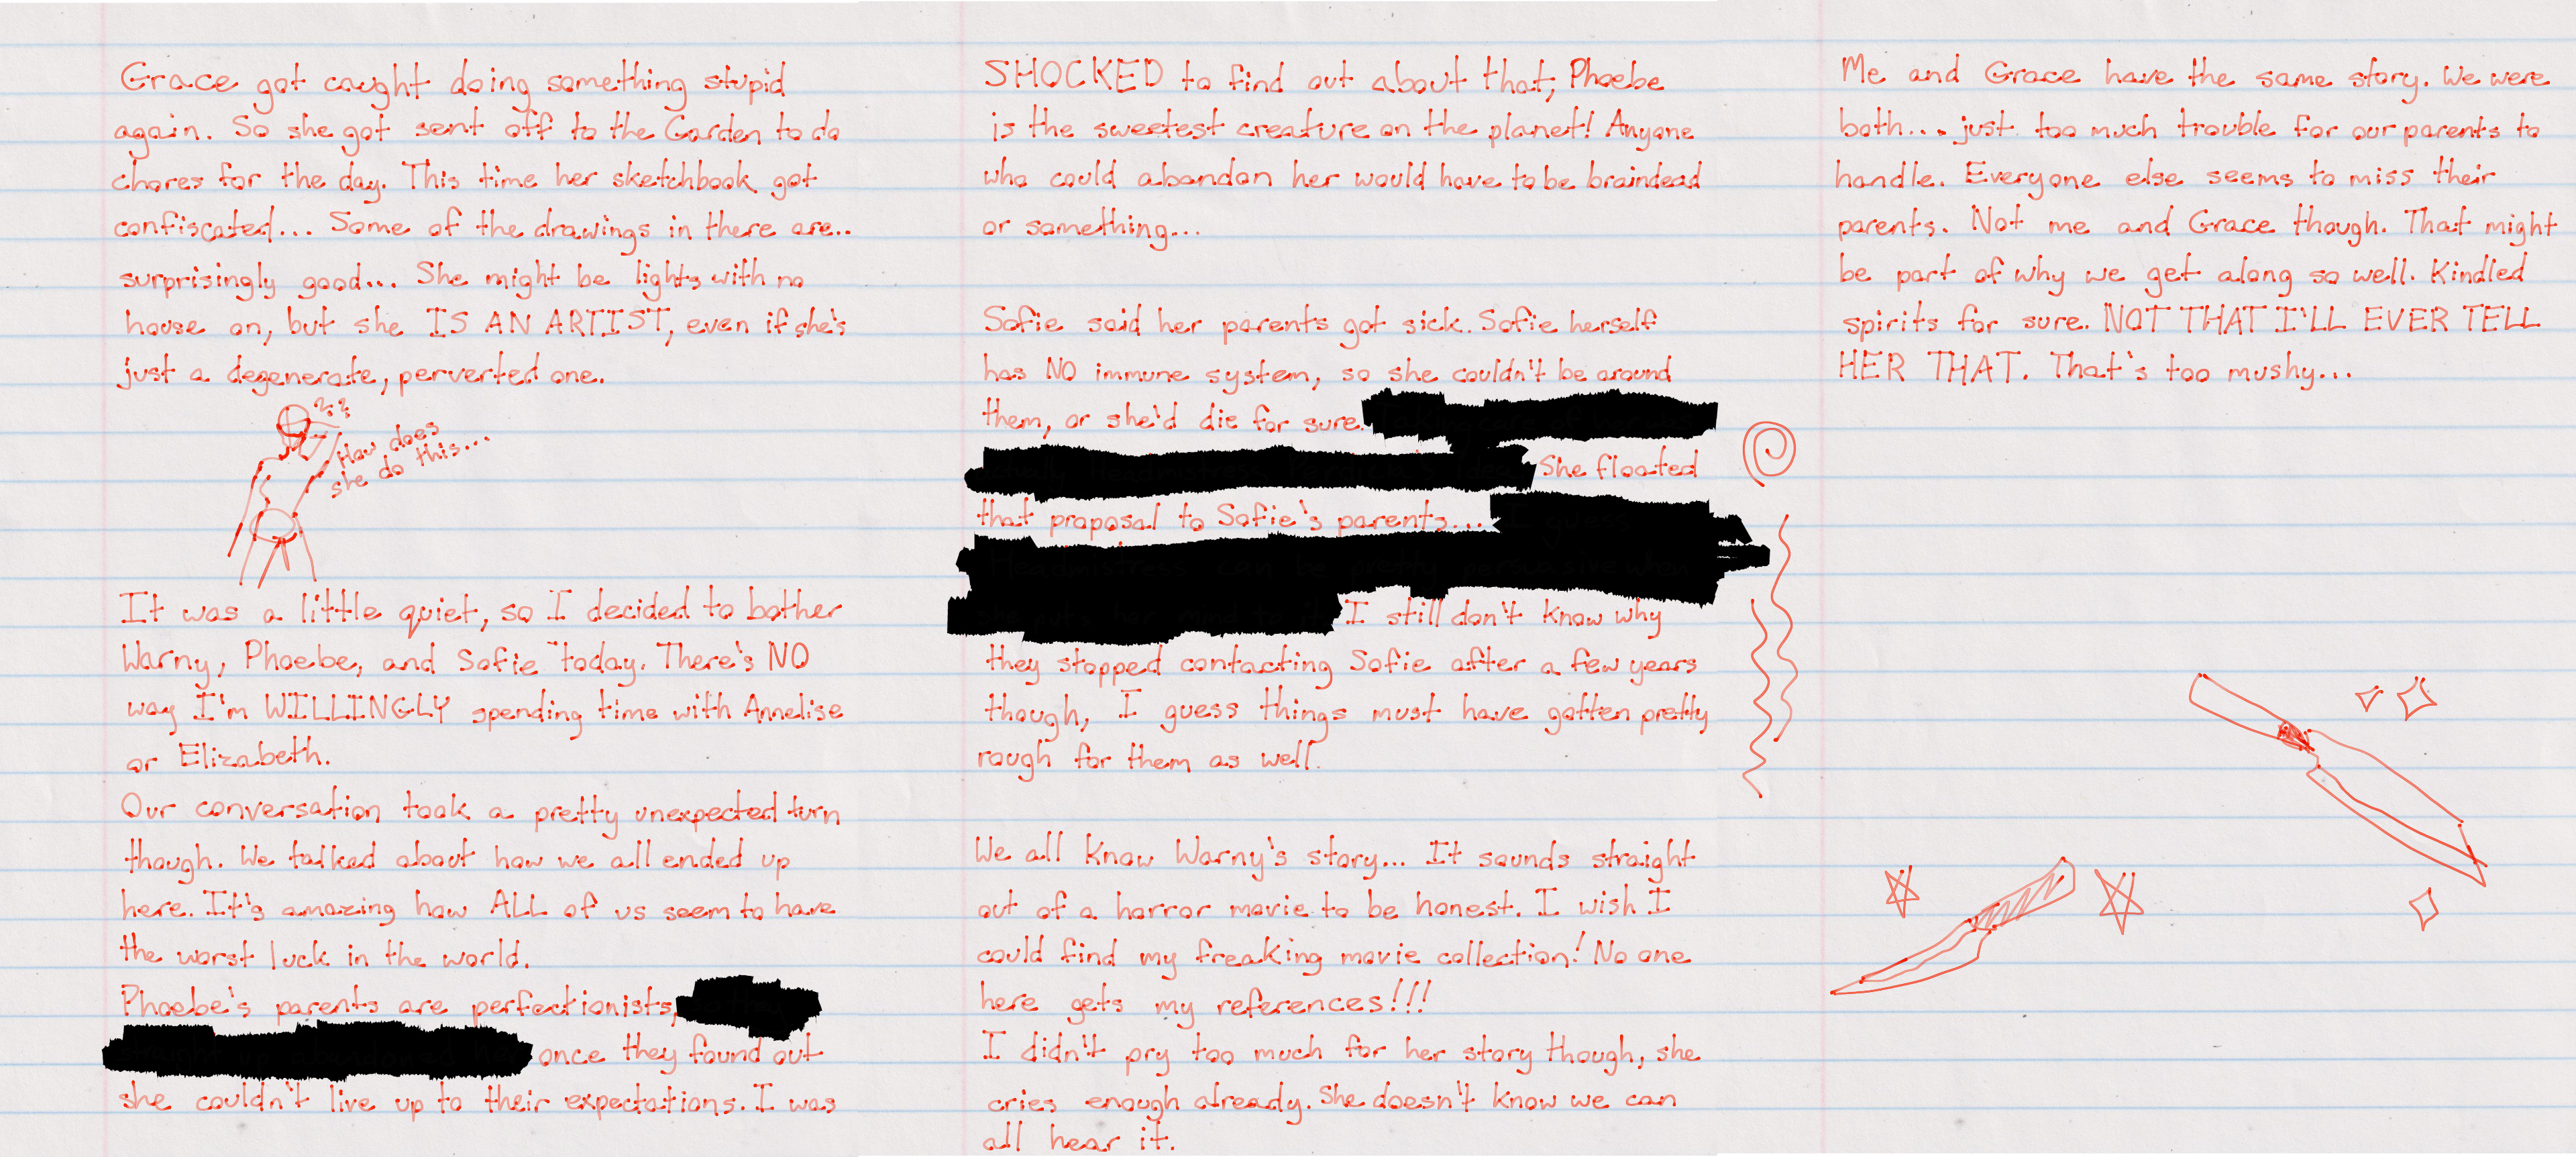 Grace got caught doing something stupid
again. So she got sent off to the Garden to do
chores for the day. This time her sketchbook got
confiscated... Some of the drawings in there are..
surprisingly good... She might be lights with no
house on, but she IS AN ARTIST, even if she's
just a degenerate, perverted one.
How does
she do this...
It was a little quiet, so I decided to bother
Warny, Phoebe, and Sofie today. There's NO
way I'm WILLINGLY spending time with Annelise
or Elizabeth.
Our conversation took a pretty unexpected turn
though. We talked about how we all ended up
here. It's amazing how ALL of us seem to have
the worst luck in the world.
Phoebe's parents are perfectionists,
once they found out
she couldn't live up to their expectations. I was
SHOCKED to find out about that, Phoebe
is the sweetest creature on the planet! Anyone
who could abandon her would have to be braindead
or something...
Sofie said her parents got sick. Sofie herself
has NO immune system, so she couldn't be around
them, or she'd die for sure.
She floated
that proposal to Sofie's parents... I guess
Headmistress can be pretty persuasive when
she puts her mind to it. I still don't know why
they stopped contacting Sofie after a few years
though, I guess things must have gotten pretty
rough for them as well.
We all know Warny's story... It sounds straight
out of a horror movie to be honest. I wish I
could find my freaking movie collection! No one
here gets my references!!!
I didn't pry too much for her story though, she
cries enough already. She doesn't know we can
all hear it.
Me and Grace have the same story. We were
both... just too much trouble for our parents to
handle. Everyone else seems to miss their
parents. Not me and Grace though. That might
be part of why we get along so well. Kindled
spirits for sure. NOT THAT I'LL EVER TELL
HER THAT. That's too mushy...